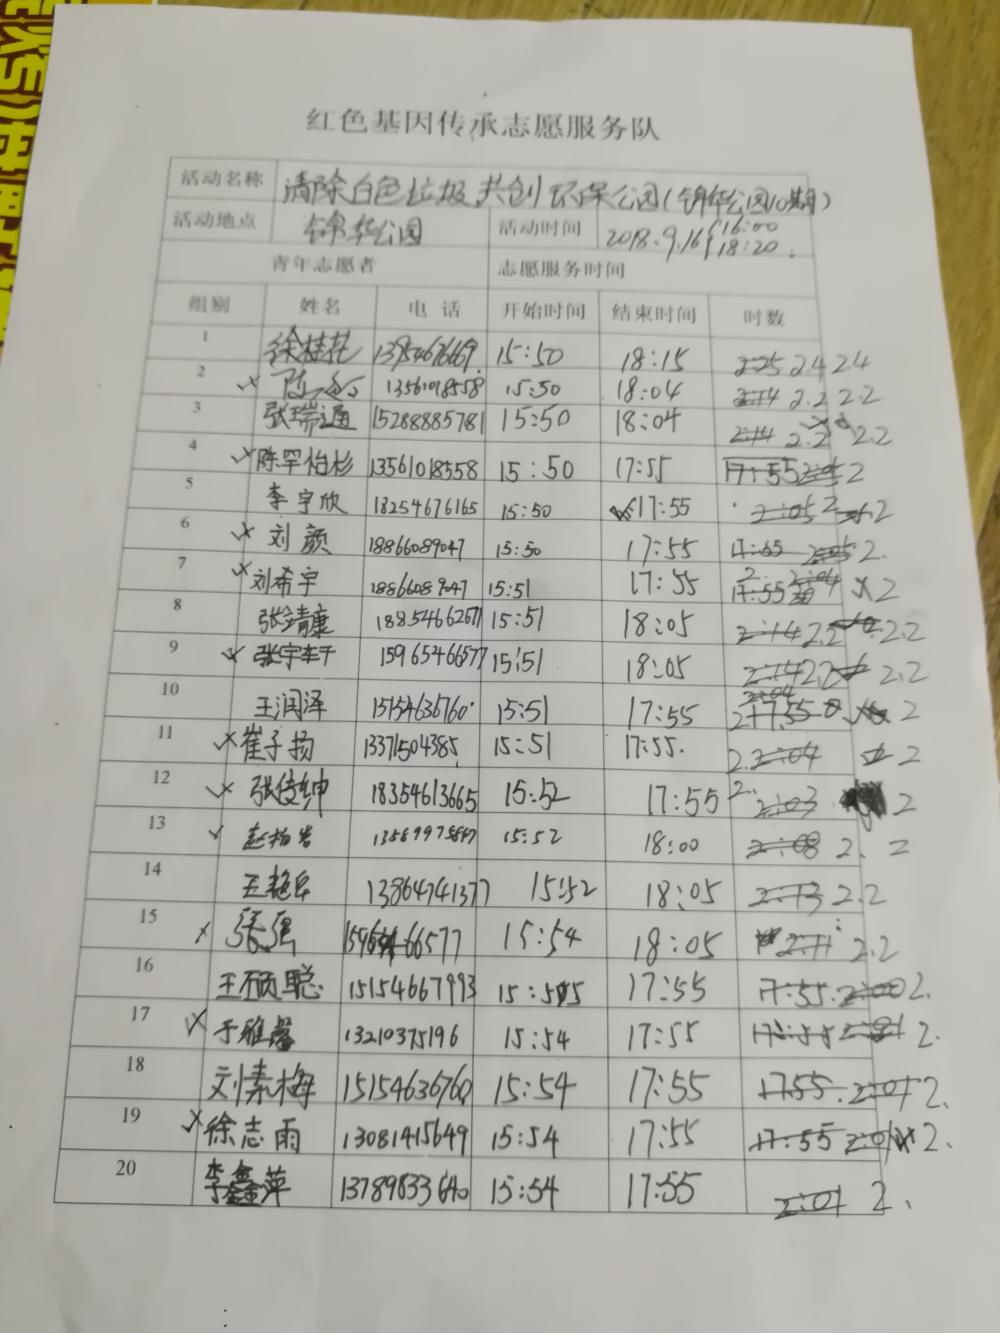 红色基因传承志愿服务队
活动名称 清除白色垃圾 共创环保公园(锦华公园10期)
活动地点 锦华公园 活动时间 2018.9.16 16:00 18:20
青年志愿者 志愿服务时间
组别 姓名 电话 开始时间 结束时间 时数
1 徐桂花 13954676669 15:50 18:15 2.4 2.4
2 13561018558 15:50 18:04 2.2 2.2
3 张瑞通 15288885781 15:50 18:04 2.2 2.2
4 陈罕柏杉 13561018558 15:50 17:55 2
5 李宇欣 18254676165 15:50 17:55 2 2
6 刘颜 18866089047 15:50 17:55 2.
7 刘希宇 18866089047 15:51 17:55 2 2
8 张靖康 18854662571 15:51 18:05 2.2 2.2
9 15965466577 15:51 18:05 2.2 2.2
10 王润泽 15154636760 15:51 17:55 2 2
11 崔子扬 13371504385 15:51 17:55. 2. 2
12 18354613665 15:52 17:55 2. 2
13 15:52 18:00 2. 2
14 王艳军 13864741377 15:52 18:05 2.2
15 张强 15965466577 15:54 18:05 2.2
16 王硕聪 15154667993 15:55 17:55 2.
17 于雅馨 13210375196 15:54 17:55 2.
18 刘素梅 15154636760 15:54 17:55 2.
19 徐志雨 13081415649 15:54 17:55 2.
20 李鑫萍 13789833640 15:54 17:55 2.